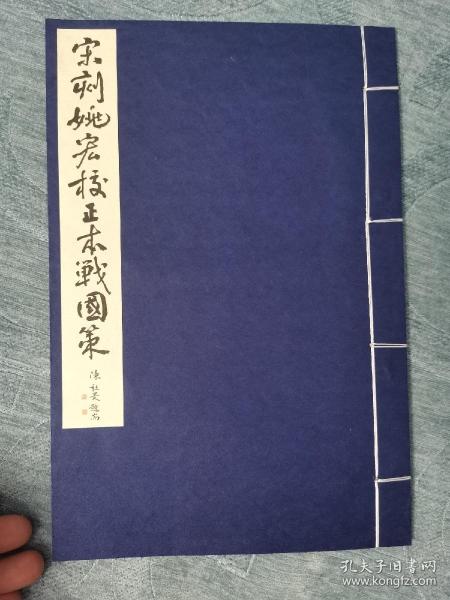 宋刻姚宏校正本戰國策
陳社旻題耑
孔夫子旧书网
www.kongfz.com